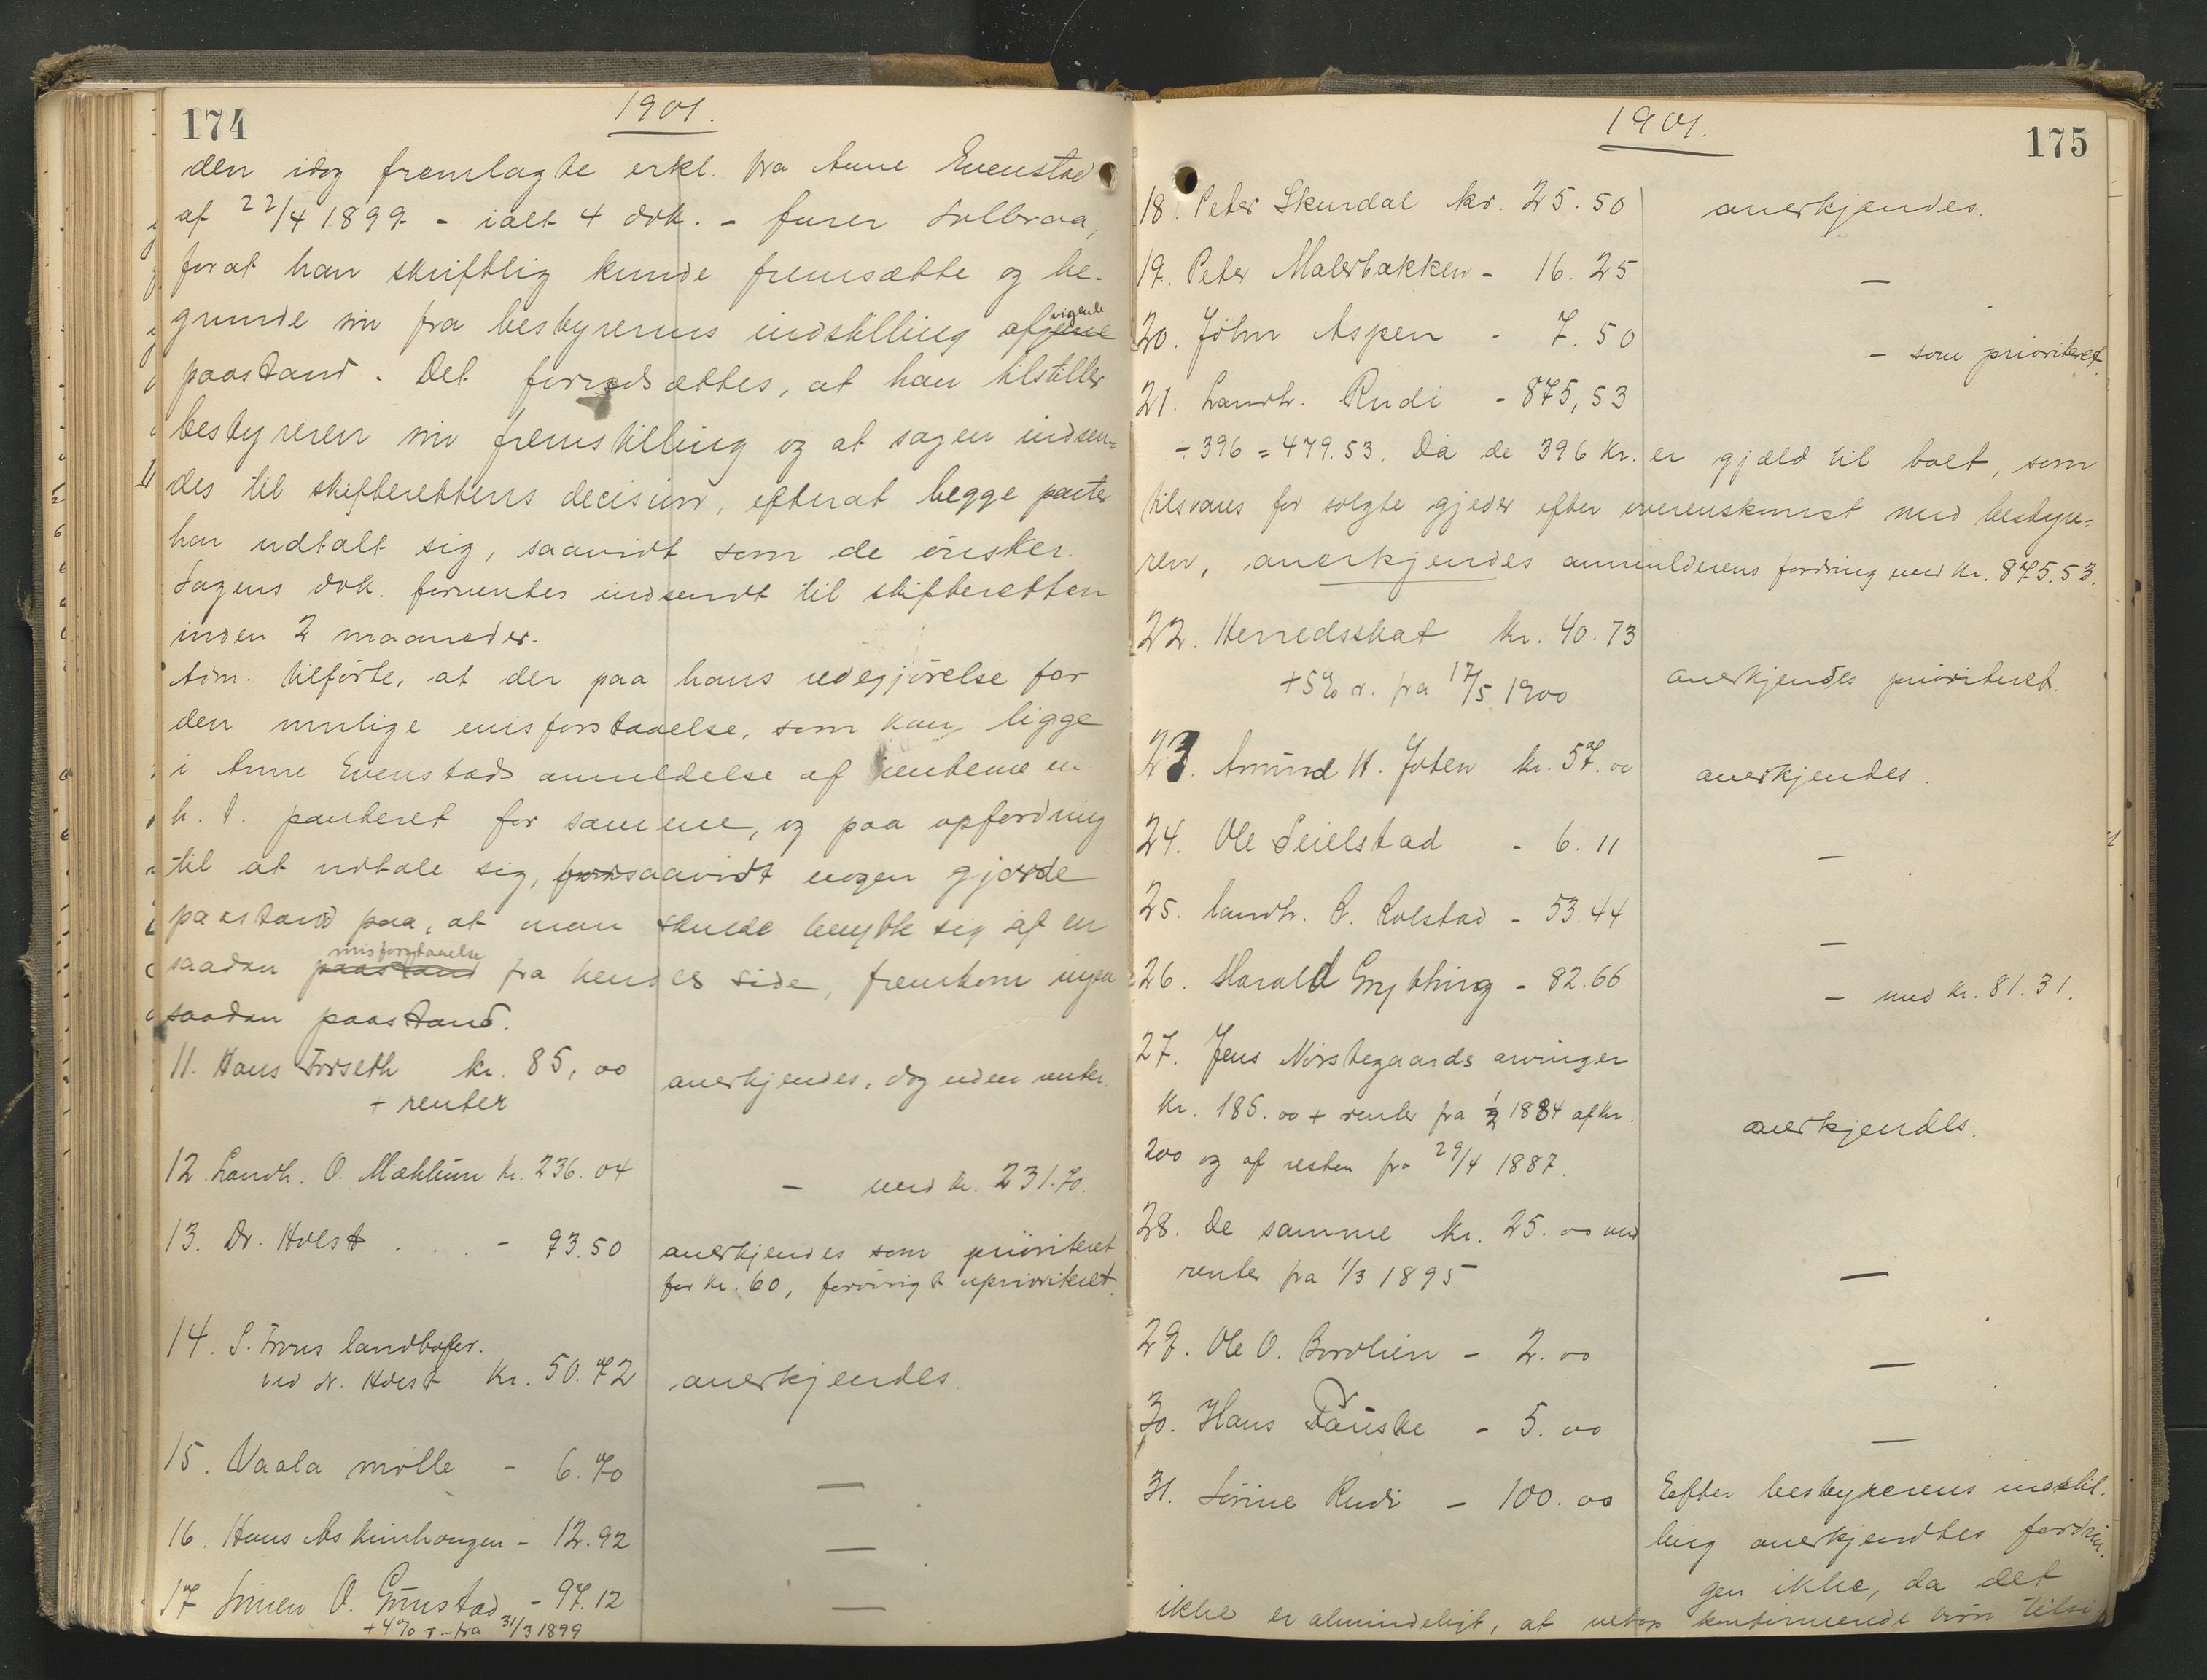 174
1901.
den idag fremlagte erkl. fra Anne Evenstad
af 22/4 1899 - ialt 4 dok. - furer Solbraa,
forat han skriftlig kunde fremsætte og be-
grunde sin fra bestyrerens indstilling afvigende
paastand. Det forudsættes, at han tilstiller
bestyreren sin fremstilling og at sagen indsen-
des til skifterettens decision, efterat begge parter
har udtalt sig, saavidt som de ønsker.
Sagens dok. forventes indsendt til skifteretten
inden 2 maaneder.
Adm. tilførte, at der paa hans redegjørelse for
den mulige misforstaaelse, som kan ligge
i Anne Evenstads anmeldelse af renterne
panteret for samme, og paa opfordring
til at udtale sig, forsaavidt nogen gjorde
paastand paa, at man skulde benytte sig af en
saadan paastand misforstaaelse fra hendes side, fremkom ingen
saadan paastand.
11. Hans Forseth kr. 85,00
+ renter
anerkjendes, dog uden renter.
12. Landh. O. Mæhlum kr. 236.04
- med kr. 231.70.
13. Dr. Holst . . . - 93.50
anerkjendes som prioriteret
for kr. 60, forøvrigt uprioriteret.
14. S. Frons landhofor.
ved dr. Holst kr. 50.72
anerkjendes.
15. Vaala mølle - 6.70
—
16. Hans Askimhaugen - 12.92
—
17 Simen O. Grimstad - 97.12
+ 4% r. fra 31/3 1899
—
1901.
175
18. Peter Skurdal kr. 25.50
anerkjendes.
19. Peter Malerbakken - 16.25
—
20. John Aspen - 7.50
- som prioriteret.
21. Landh. Rudi - 875,53
÷ 396 = 479.53. Da de 396 kr. er gjæld til boet, som
tilsvares for solgte gjeder efter overenskomst med besty-
ren, anerkjendes anmelderens fordring med kr. 875.53.
22. Herredsskat kr. 40.73
+ 5% r. fra 17/5 1900
anerkjendes prioriteret.
23. Amund H. Joten kr. 57.00
anerkjendes.
24. Ole Seielstad - 6.11
—
25. Landh. R. Rolstad - 53.44
—
26. Harald Grytting - 82.66
- med kr. 81.31.
27. Jens Nørstegaards arvinger
kr. 185.00 + renter fra 1/2 1884 af kr.
200 og af resten fra 29/4 1887.
anerkjendes.
28. De samme kr. 25.00 med
renter fra 1/3 1895
—
29. Ole O. Bordlien - 2.00
—
30. Hans Fauske - 5.00
—
31. Sørine Rudi - 100.00
Efter bestyrerens indstil-
ling anerkjendtes fordrin-
gen ikke, da det
ikke er almindeligt, at netop konfirmerede børn